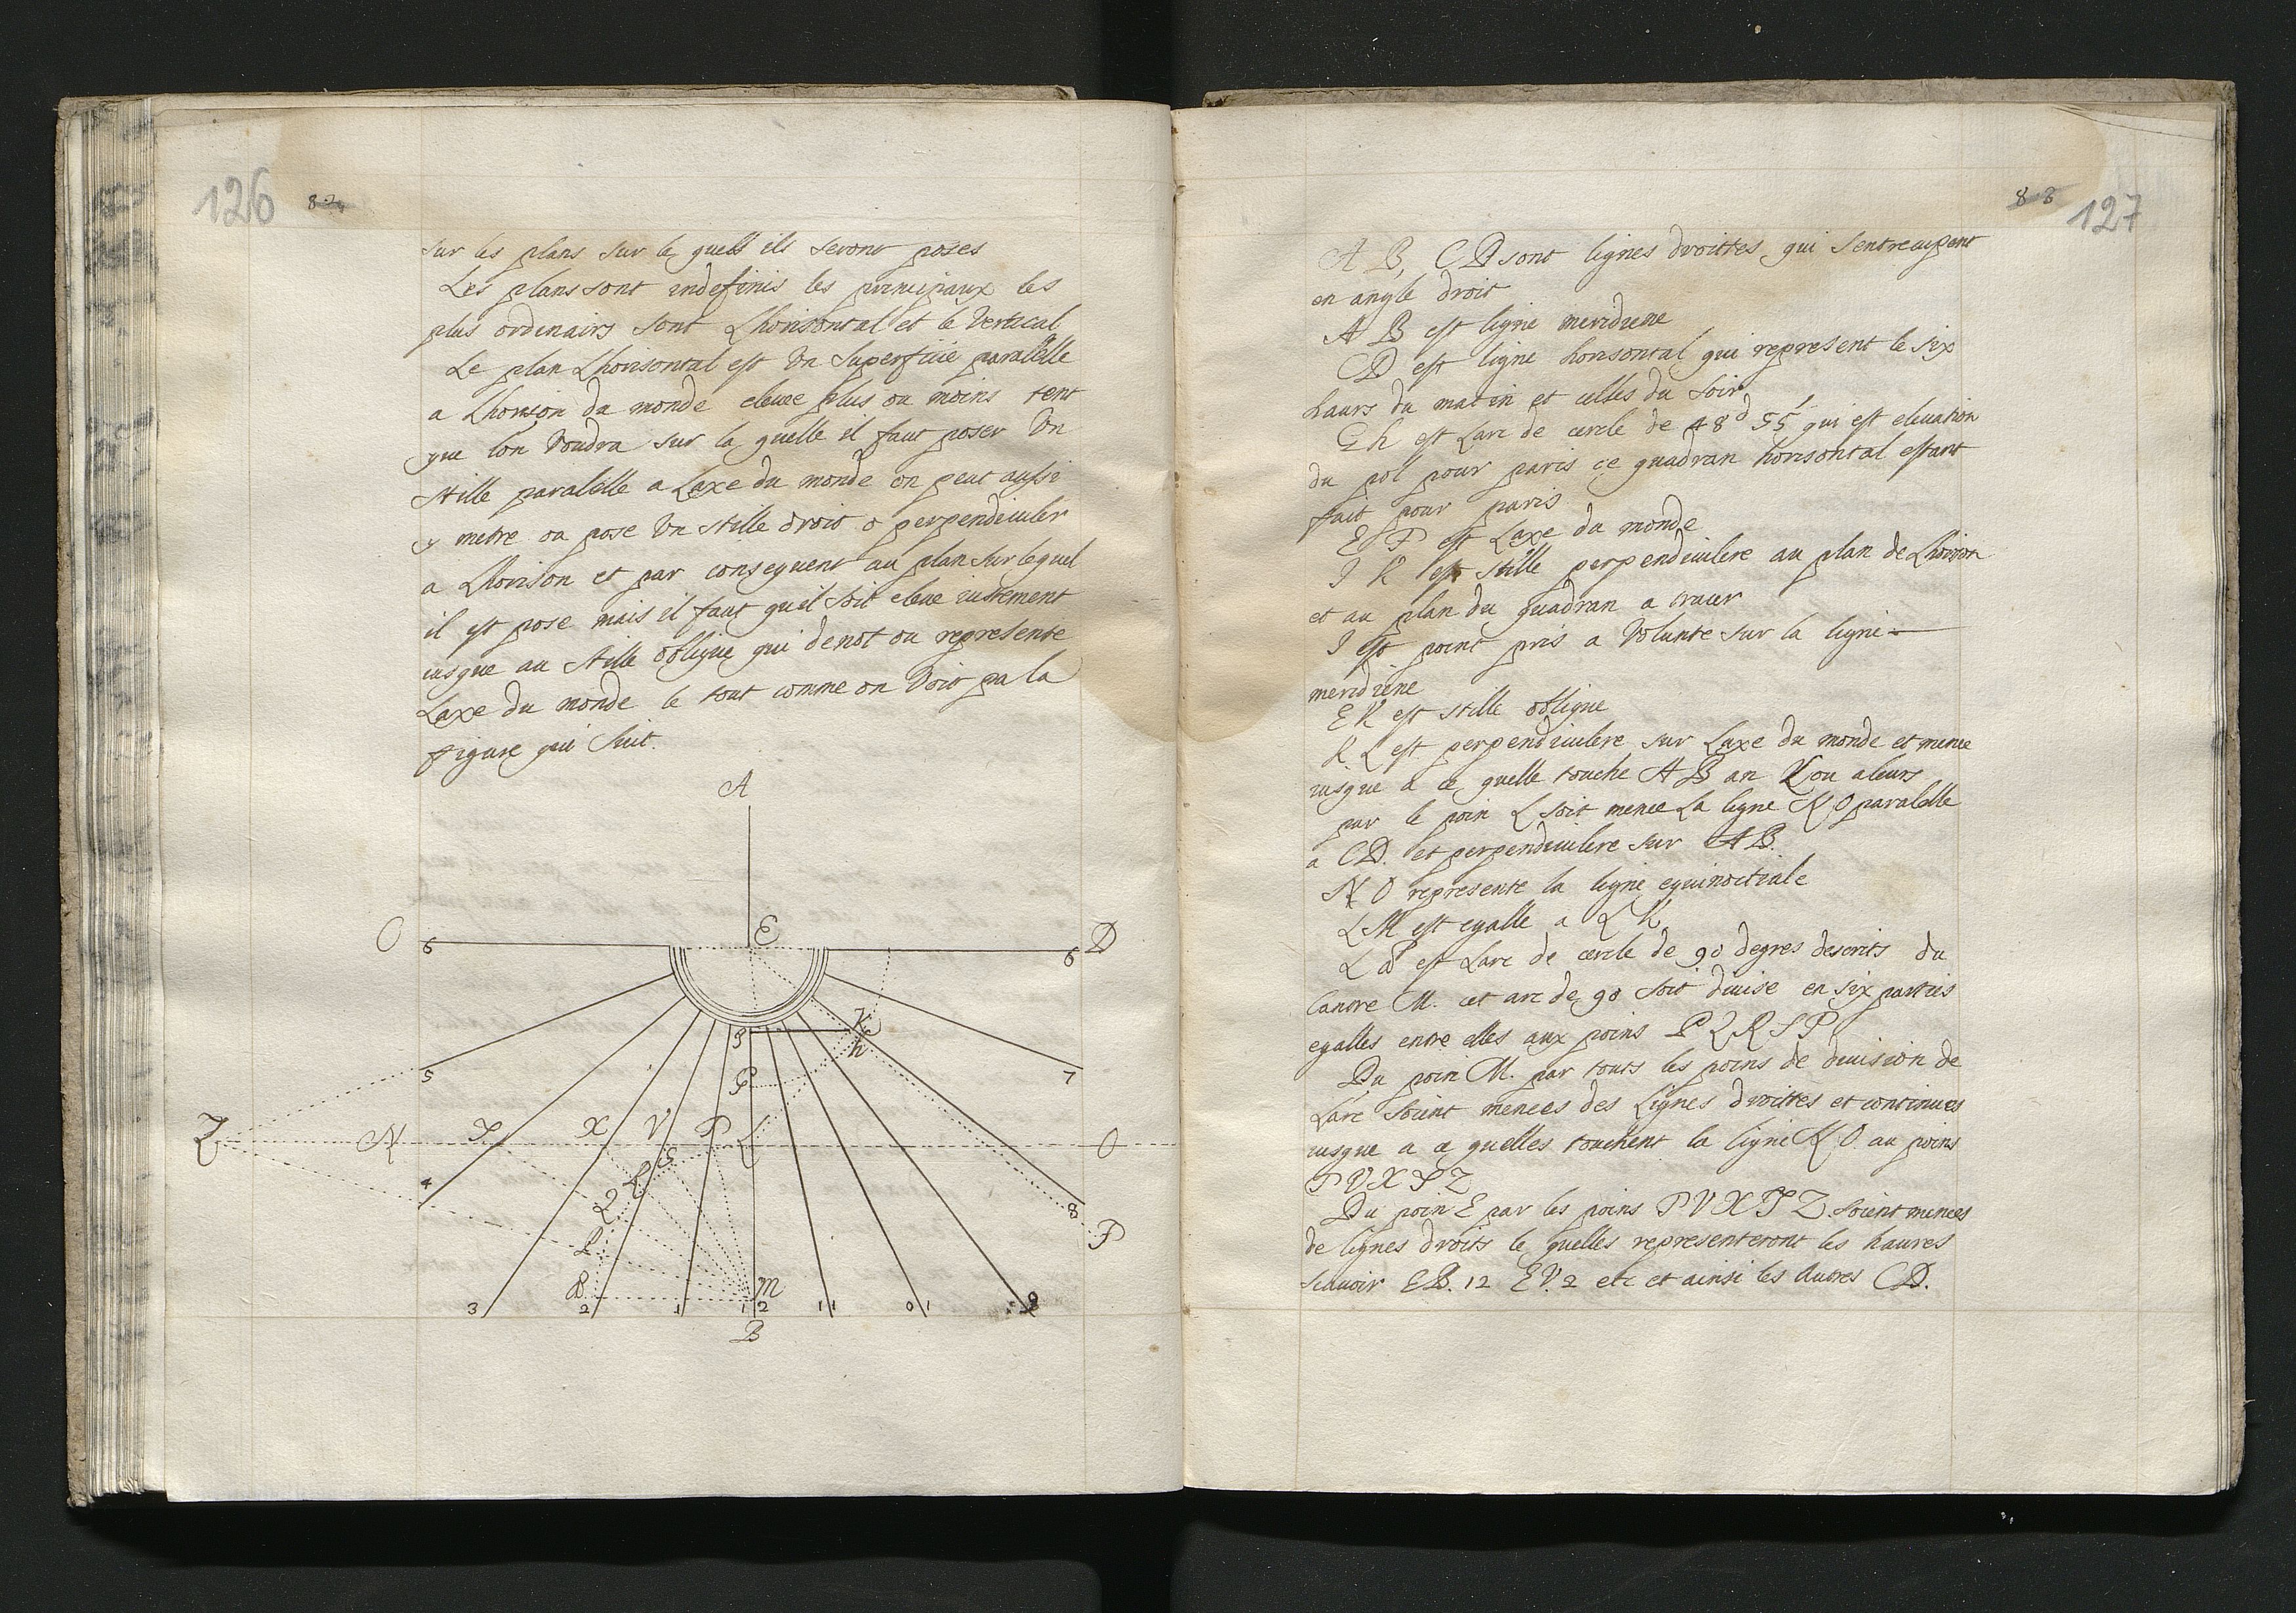 126 82
sur les plans sur le quells ils seront poses
Les plans sont indefinis les principaux les
plus ordinairs sont Lhorisontal et le Vertical
Le plan Lhorisontal est Un Superficie paralelle
a Lhorison du monde elevee plus ou moins tent
que lon Voudra sur la quelle il faut poser Un
stille paralelle a Laxe du monde on peut aussi
y metre ou pose Un stille droit o perpendiculer
a Lhorison et par consequent au plan sur lequel
il est pose mais il faut quil soit eleve iustement
iusque au stille obligue qui denot ou represente
Laxe du monde le tout comme on Voit pa la
figure qui suit.
A
C 6 E 6 D
K
h
5 7
Z N T X V P L O
S
R
Q
4 8
P
M
3 2 1 12 11 01 9
B
83 127
A B, C D sont lignes droittes qui s'entrecupent
en angle droit
A B est ligne meridiene
CD est ligne horisontal qui represent le six
haurs du matin et celles du soir
G h est Larc de cercle de 48d 55' qui est elevation
du pol pour paris ce quadran horisontal estant
fait pour paris
E P est Laxe du monde
I K est stille perpendiculere au plan de Lhorison
et au plan du quadran a tracer
I est point pris a Volunte sur la ligne —
meridiene
EK est stille obligue
K L est perpendiculere sur Laxe du monde et menee
iusque a ce quelle touche AB an L ou aleurs
par le poin L soit menee La ligne N O paralelle
a CD. et perpendiculere sur AB.
N O represente la ligne equinoctiale
L M est egalle a L K
L est Larc de cercle de 90 degres descrits du
Cantre M. cet arc de 90 soit divise en six parties
egalles entre elles aux poins P Q R S P
Du poin M. par touts les poins de division de
Larc soint menees des Lignes droittes et continues
iusque a ce quelles touchent la ligne N O au poins
P V X T Z
Du poin E par les poins P V X T Z soient menees
de lignes droits le quelles representeront les haures
scavoir EB. 12 EV. 2 etc et ainsi les autres CD.